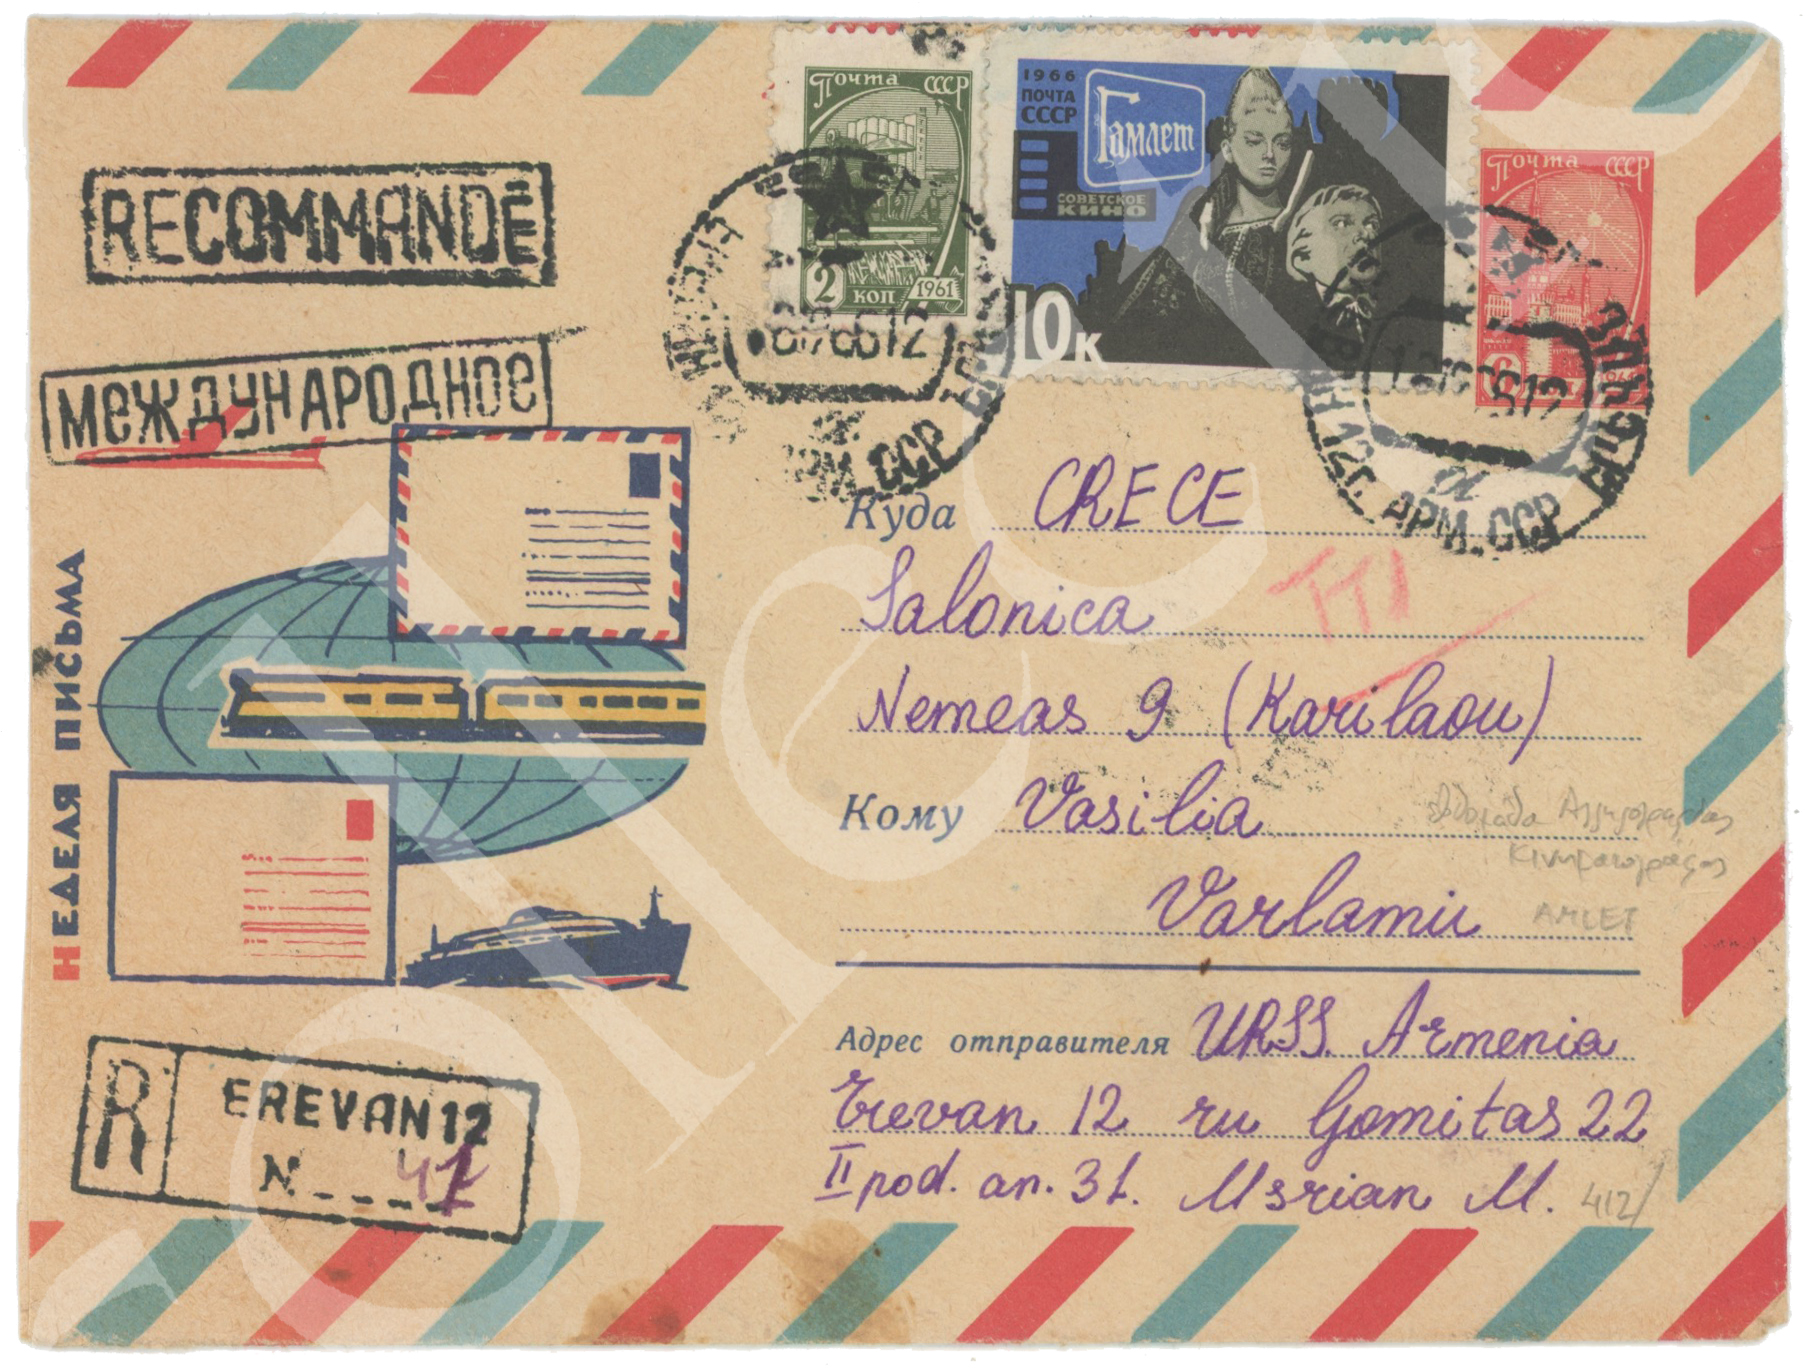 Почта СССР
2 коп 1961
1966
ПОЧТА
СССР
Гамлет
СОВЕТСКОЕ
КИНО
10к
Почта СССР
6
RECOMMANDÉ
МЕЖДУНАРОДНОЕ
АРМ.ССР
12г. АРМ.ССР
НЕДЕЛЯ ПИСЬМА
Куда CRECE
Salonica
Nemeas 9 (Karilaou)
Кому Vasilia
Varlamu
AMLET
Адрес отправителя URSS. Armenia
Erevan 12 ru Gomitas 22
II pod. an. 31. Msrian M. 412/
R EREVAN 12
N. 41